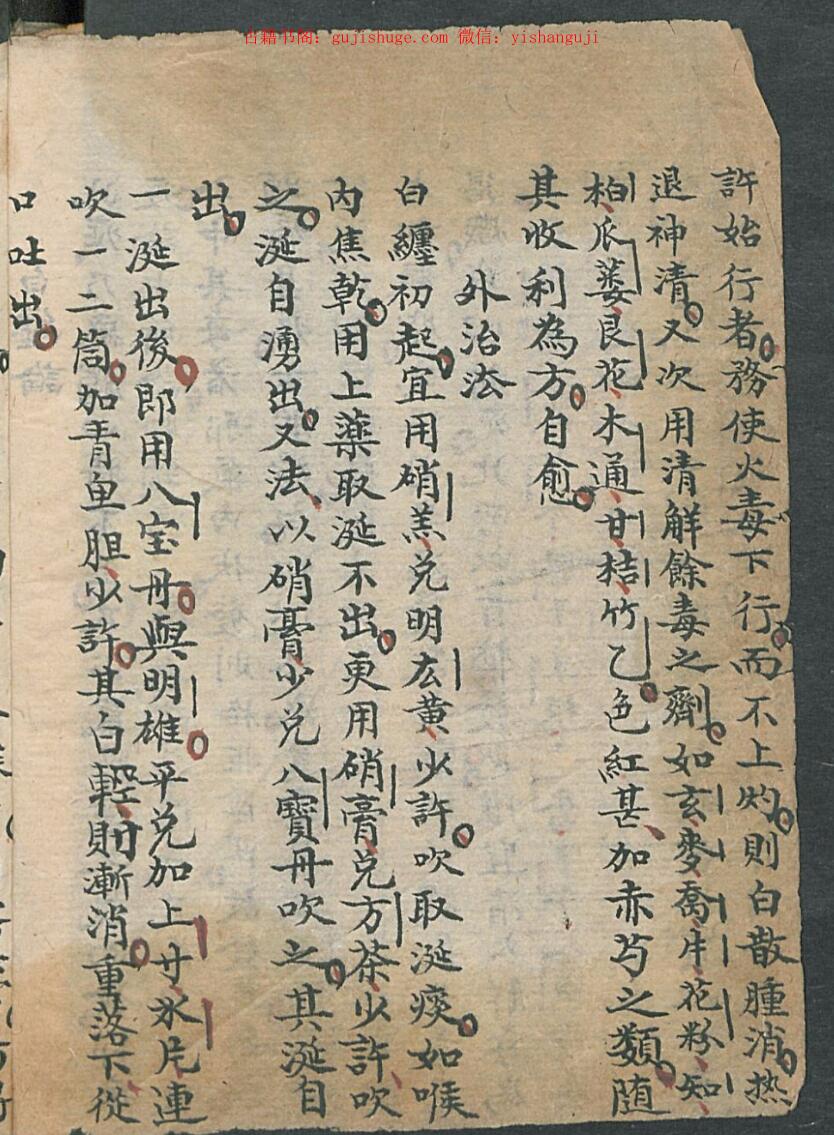 古籍书阁：gujishuge.com 微信：yishanguji
許始行者。務使火毒下行。而不上灼。則白散腫消。热
退神清。又次用清解餘毒之劑。如玄、麥、喬、牛、花粉、知、
柏、瓜蒌、艮花、木通、甘、桔、竹乙。色紅甚、加赤芍之類。随
其收利為方。自愈。
外治法
白纏初起。宜用硝羔、兑明広黄少許。吹取涎痰。如喉
内焦乾。用上藥取涎不出。更用硝膏、兑方茶少許、吹
之。涎自湧出。又法、以硝膏、少兑八寶丹吹之。其涎自
出。
一涎出後。即用八宝丹。與明雄。平兑加上寸、氷片、連
吹一二筒。加青魚胆、少許。其白輕、則漸消。重落下、從
口吐出。